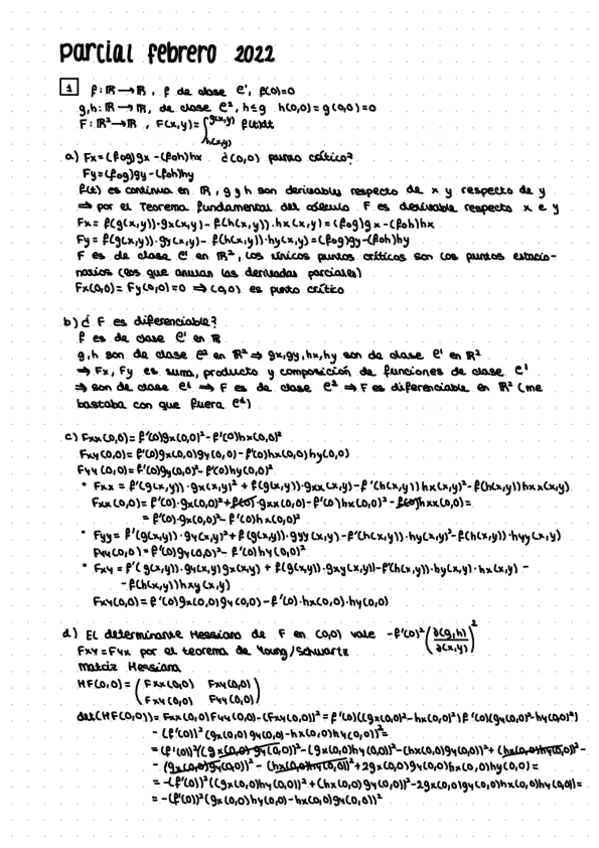 parcial febrero 2022
1 f: ℝ→ℝ, f de clase e¹, f(0)=0
g,h: ℝ→ℝ, de clase e², h≤g h(0,0)=g(0,0)=0
F: ℝ²→ℝ, F(x,y)=∫_{h(x,y)}^{g(x,y)} f(t)dt
a) Fx=(fog)gx-(foh)hx ¿(0,0) punto crítico?
Fy=(fog)gy-(foh)hy
f(t) es continua en ℝ, g y h son derivables respecto de x y respecto de y
⇒ por el Teorema fundamental del cálculo F es derivable respecto x e y
Fx=f(g(x,y))·gx(x,y)-f(h(x,y))·hx(x,y)=(fog)gx-(foh)hx
Fy=f(g(x,y))·gy(x,y)-f(h(x,y))·hy(x,y)=(fog)gy-(foh)hy
F es de clase e¹ en ℝ², los únicos puntos críticos son los puntos estacio-
narios (los que anulan las derivadas parciales)
Fx(0,0)=Fy(0,0)=0 ⇒ (0,0) es punto crítico
b) ¿F es diferenciable?
f es de clase e¹ en ℝ
g,h son de clase e² en ℝ² ⇒ gx,gy,hx,hy son de clase e¹ en ℝ²
⇒ Fx, Fy es suma, producto y composición de funciones de clase e¹
⇒ son de clase e¹ ⇒ F es de clase e² ⇒ F es diferenciable en ℝ² (me
bastaba con que fuera e¹)
c) Fxx(0,0)=f'(0)gx(0,0)²-f'(0)hx(0,0)²
Fxy(0,0)=f'(0)gx(0,0)gy(0,0)-f'(0)hx(0,0)hy(0,0)
Fyy(0,0)=f'(0)gy(0,0)²-f'(0)hy(0,0)²
• Fxx=f'(g(x,y))·gx(x,y)²+f(g(x,y))·gxx(x,y)-f'(h(x,y))hx(x,y)²-f(h(x,y))hxx(x,y)
Fxx(0,0)=f'(0)·gx(0,0)²+f(0)·gxx(0,0)-f'(0)hx(0,0)²-f(0)hxx(0,0)=
=f'(0)·gx(0,0)²-f'(0)hx(0,0)²
• Fyy=f'(g(x,y))·gy(x,y)²+f(g(x,y))·gyy(x,y)-f'(h(x,y))·hy(x,y)²-f(h(x,y))·hyy(x,y)
Fyy(0,0)=f'(0)gy(0,0)²-f'(0)hy(0,0)²
• Fxy=f'(g(x,y))·gy(x,y)gx(x,y)+f(g(x,y))·gxy(x,y)-f'(h(x,y))·hy(x,y)·hx(x,y)-
-f(h(x,y))hxy(x,y)
Fxy(0,0)=f'(0)gx(0,0)gy(0,0)-f'(0)·hx(0,0)·hy(0,0)
d) El determinante Hessiano de F en (0,0) vale -f'(0)²(∂(g,h)/∂(x,y))²
Fxy=Fyx por el teorema de Young/Schwartz
Matriz Hessiana
HF(0,0)=(Fxx(0,0) Fxy(0,0)
Fxy(0,0) Fyy(0,0))
det(HF(0,0))=Fxx(0,0)Fyy(0,0)-(Fxy(0,0))²=f'(0)(gx(0,0)²-hx(0,0)²)f'(0)(gy(0,0)²-hy(0,0)²)
-(f'(0))²(gx(0,0)gy(0,0)-hx(0,0)hy(0,0))²=
=(f'(0))²((gx(0,0)gy(0,0))²-(gx(0,0)hy(0,0))²-(hx(0,0)gy(0,0))²+(hx(0,0)hy(0,0))²-
-(gx(0,0)gy(0,0))²-(hx(0,0)hy(0,0))²+2gx(0,0)gy(0,0)hx(0,0)hy(0,0)=
=-(f'(0))²((gx(0,0)hy(0,0))²+(hx(0,0)gy(0,0))²-2gx(0,0)gy(0,0)hx(0,0)hy(0,0))=
=-(f'(0))²(gx(0,0)hy(0,0)-hx(0,0)gy(0,0))²